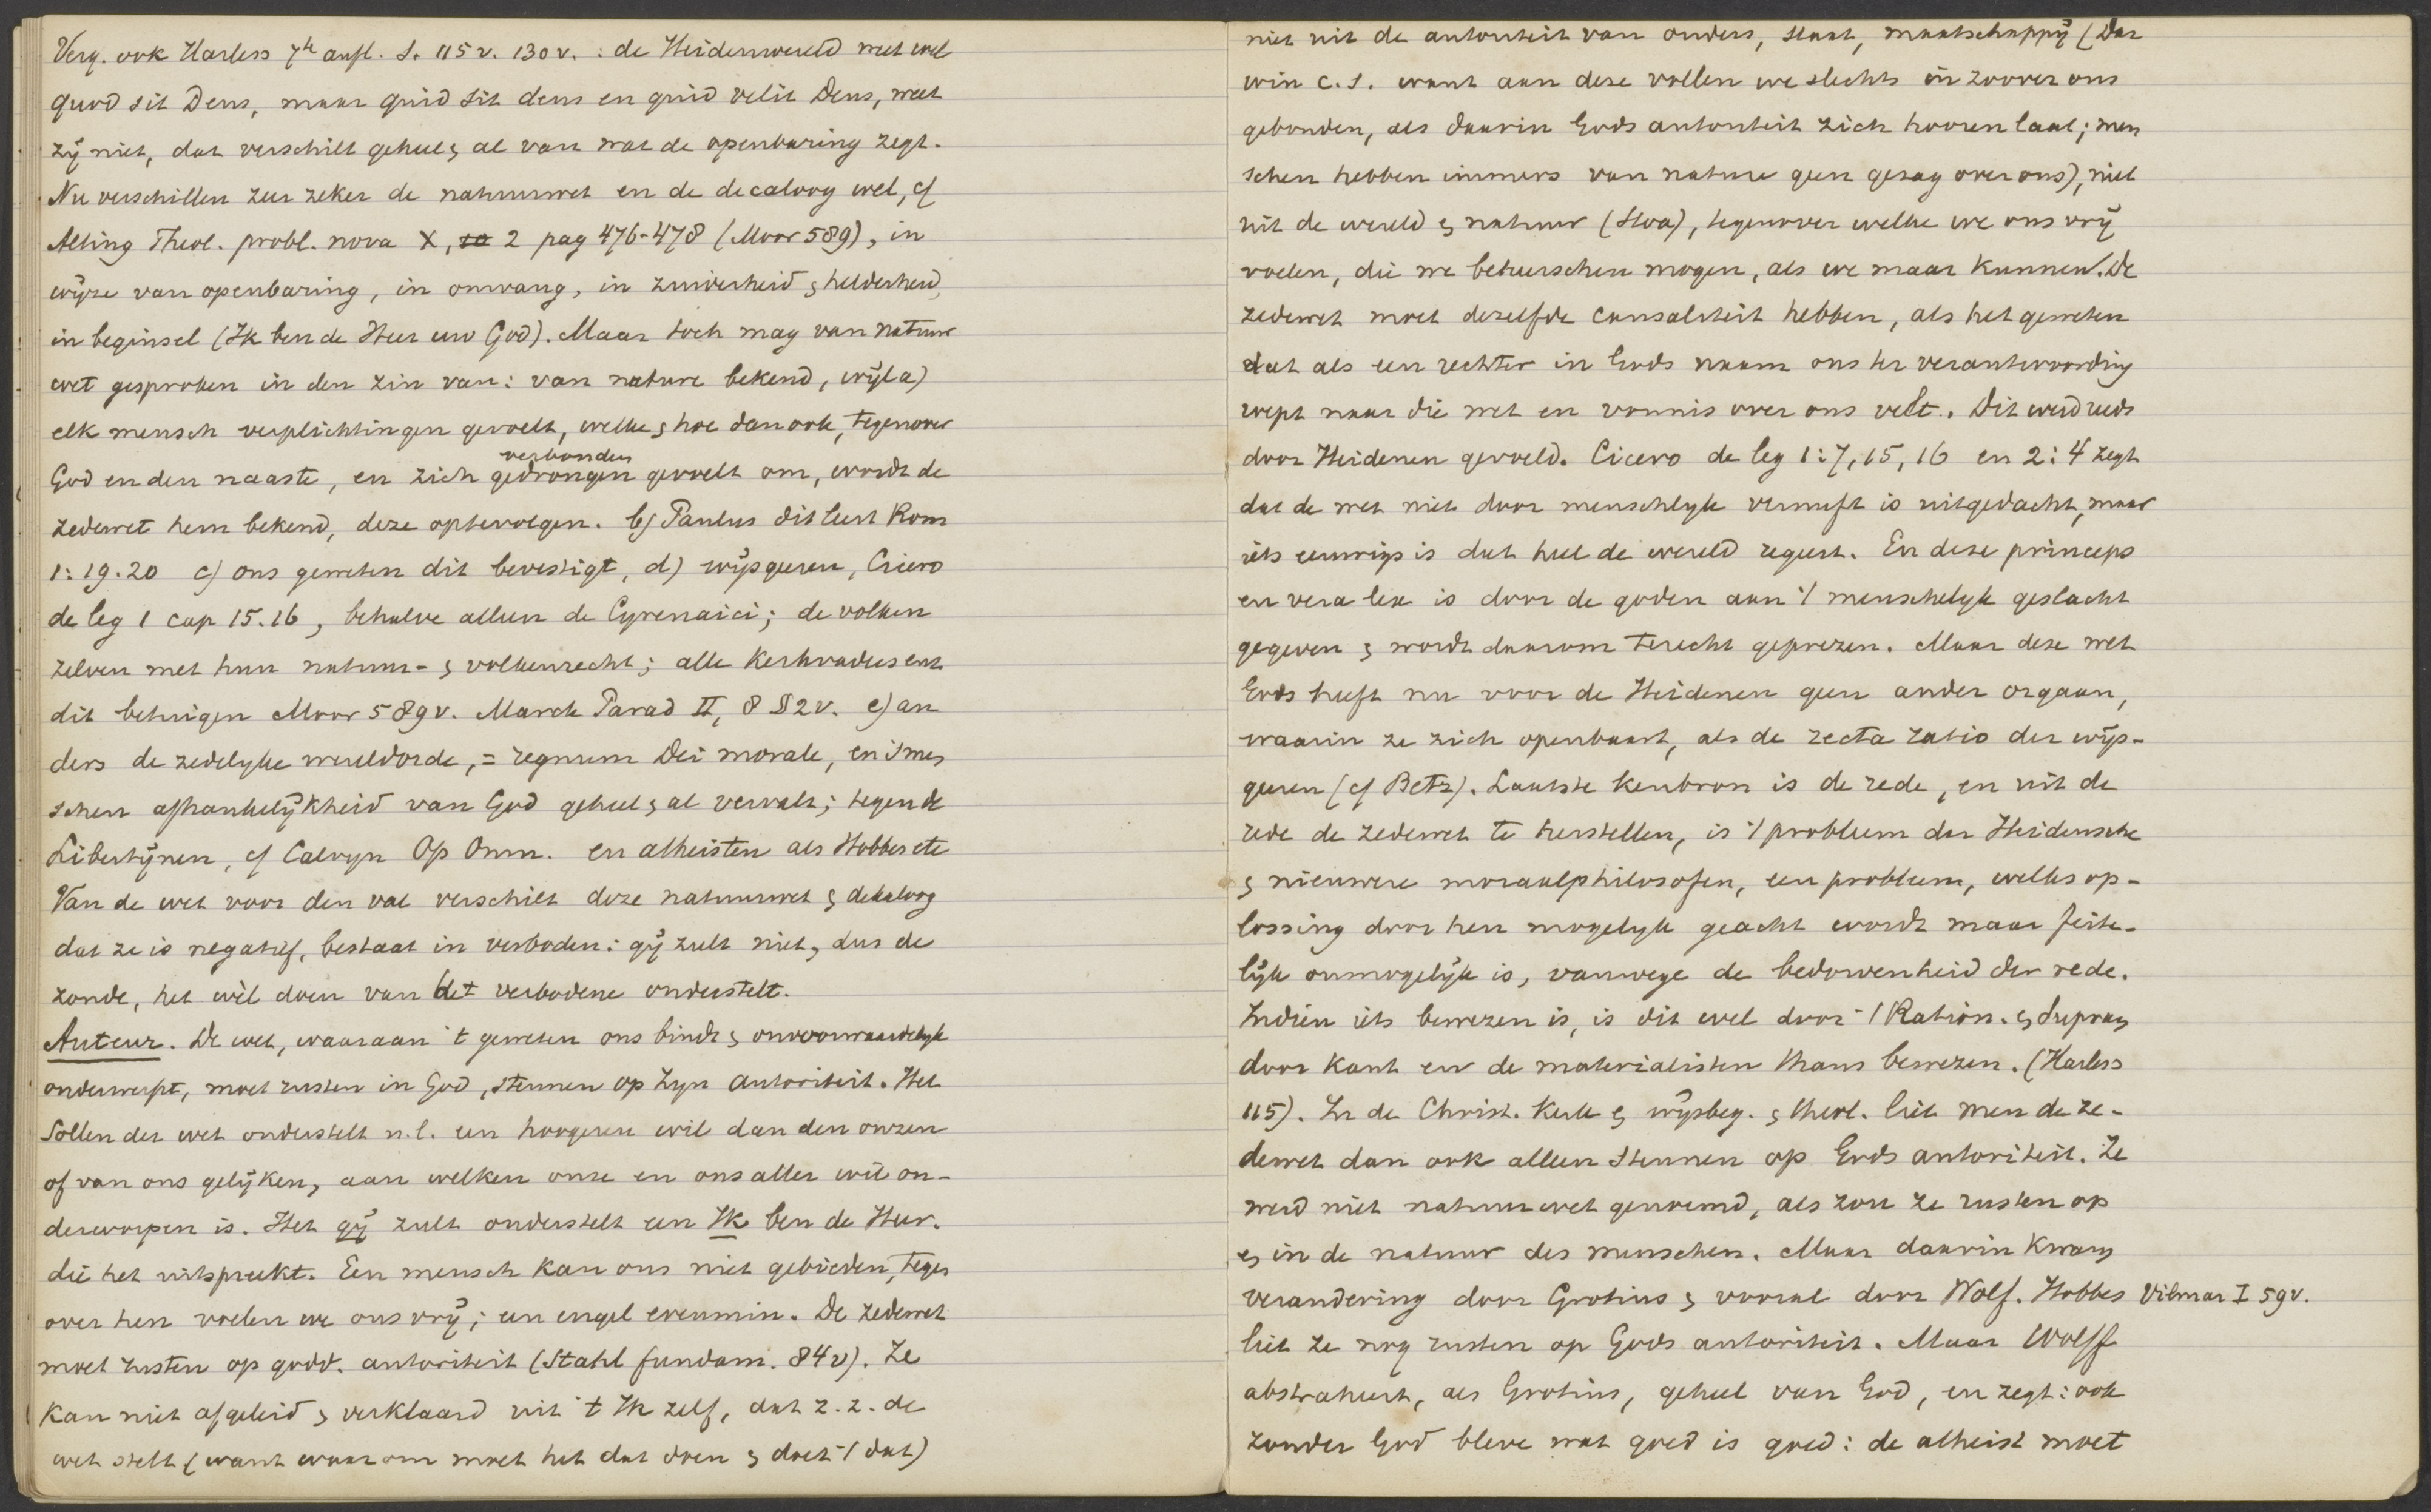 Verg. ook Harless 7te aufl. S. 115 v. 130 v. : de Heidenwereld weet wel
quod sit Deus, maar quid sit deus en quid velit Deus, weet
zij niet, dat verschilt geheel & al van wat de openbaring zegt.
Nu verschillen zeer zeker de natuurwet en de decaloog wel, cf
Alting Theol. probl. nova X, 2 pag 476-478 (Moor 589), in
wijze van openbaring, in omvang, in zuiverheid & helderheid,
in beginsel (Ik ben de Heer uw God). Maar toch mag van natuur
wet gesproken in den zin van: van nature bekend, wijl a)
elk mensch verplichtingen gevoelt, welke & hoe dan ook, tegenover
verbonden
God en den naaste, en zich gedrongen gevoelt om, wordt de
zedewet hem bekend, deze optevolgen. b) Paulus dit leert Rom
1:19.20 c) ons geweten dit bevestigt, d) wijsgeeren, Cicero
de leg 1 cap 15.16, behalve alleen de Cyrenaici; de volken
zelven met hun natuur- & volkenrecht; alle kerkvaders enz
dit betuigen Moor 589 v. Marck Parad II, 8 § 2 v. e) an
ders de zedelijke wereldorde, = regnum Dei morale, en 's men
schen afhankelijkheid van God geheel & al vervalt; tegen de
Libertijnen, cf Calvyn Op Omn. en atheisten als Hobbes etc
Van de wet voor den val verschilt deze natuurwet & dekaloog
dat ze is negatief, bestaat in verboden: gij zult niet, dus de
zonde, het wèl doen van het verbodene onderstelt.
Auteur. De wet, waaraan 't geweten ons bindt & onvoorwaardelijk
onderwerpt, moet rusten in God, steunen op Zijn autoriteit. Het
Sollen der wet onderstelt n.l. een hoogeren wil dan den onzen
of van ons gelijken, aan welken onze en ons aller wil on-
derworpen is. Het gij zult onderstelt een Ik ben de Heer.
die het uitspreekt. Een mensch kan ons niet gebieden, tegen
over hen voelen we ons vrij; een engel evenmin. De zedewet
moet rusten op godd. autoriteit (Stahl fundam. 84 v). Ze
kan niet afgeleid & verklaard uit 't Ik zelf, dat z. z. de
wet stelt (want waarom moet het dat doen & doet 't dat)
niet uit de autoriteit van ouders, staat, maatschappij (Dar
win c.s. want aan deze voelen we slechts in zoover ons
gebonden, als daarin Gods autoriteit zich hooren laat; men
schen hebben immers van nature geen gezag over ons), niet
uit de wereld & natuur (Stoa), tegenover welke we ons vrij
voelen, die we beheerschen mogen, als we maar kunnen. De
zedewet moet dezelfde causaliteit hebben, als het geweten
dat als een rechter in Gods naam ons ter verantwoording
roept naar die wet en vonnis over ons velt. Dit werd reeds
door Heidenen gevoeld. Cicero de leg 1:7, 15, 16 en 2:4 zegt
dat de wet niet door menschlijk vernuft is uitgedacht, maar
iets eeuwigs is dat heel de wereld regeert. En deze princeps
en vera lex is door de goden aan 't menschelijk geslacht
gegeven & wordt daarom terecht geprezen. Maar deze wet
Gods heeft nu voor de Heidenen geen ander orgaan,
waarin ze zich openbaart, als de recta ratio der wijs-
geeren (cf Betz). Laatste kenbron is de rede, en uit de
rede de zedewet te herstellen, is 't probleem der Heidensche
& nieuwere moraalphilosofen, een probleem, welks op-
lossing door hen mogelijk geacht wordt maar feite-
lijk onmogelijk is, vanwege de bedorvenheid der rede.
Indien iets bewezen is, is dit wel door 't Ration. & Supran
door Kant en de materialisten thans bewezen. (Harless
115). In de Christ. Kerk & wijsbeg. & theol. liet men de ze-
dewet dan ook alleen steunen op Gods autoriteit. Ze
werd niet natuurwet genoemd, als zou ze rusten op
& in de natuur des menschen. Maar daarin kwam
verandering door Grotius & vooral door Wolf. Hobbes Vilmar I 59 v.
liet ze nog rusten op Gods autoriteit. Maar Wolff
abstraheert, als Grotius, geheel van God, en zegt: ook
zonder God bleve wat goed is goed: de atheist moet